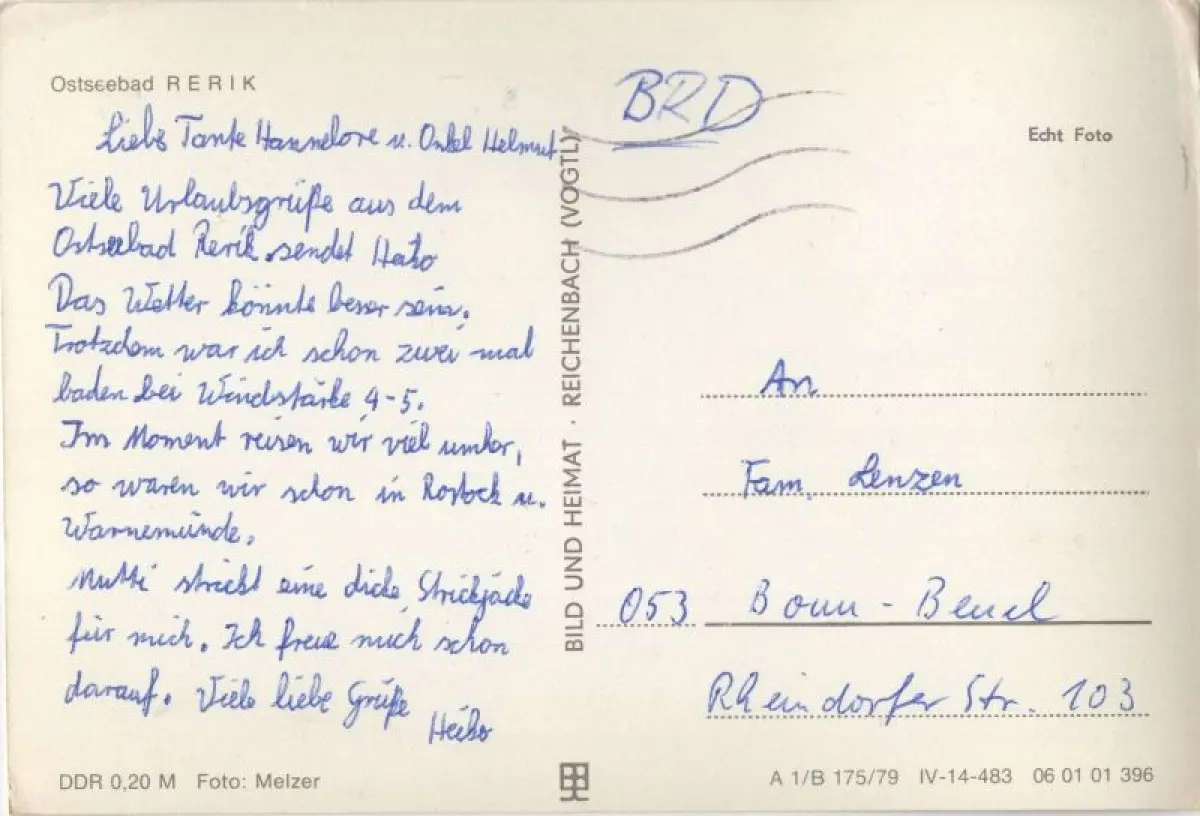 Ostseebad RERIK
Liebe Tante Hannelore u. Onkel Helmut
Viele Urlaubsgrüße aus dem
Ostseebad Rerik sendet Heiko
Das Wetter könnte besser sein.
Trotzdem war ich schon zwei mal
baden bei Windstärke 4-5.
Im Moment reisen wir viel umher,
so waren wir schon in Rostock u.
Warnemünde.
Mutti strickt eine dicke Strickjacke
für mich. Ich freue mich schon
darauf. Viele liebe Grüße
Heiko
DDR 0,20 M Foto: Melzer
BILD UND HEIMAT · REICHENBACH (VOGTL)
BRD
Echt Foto
An
Fam. Lenzen
053 Bonn-Beuel
Rheindorfer Str. 103
A 1/B 175/79 IV-14-483 06 01 01 396